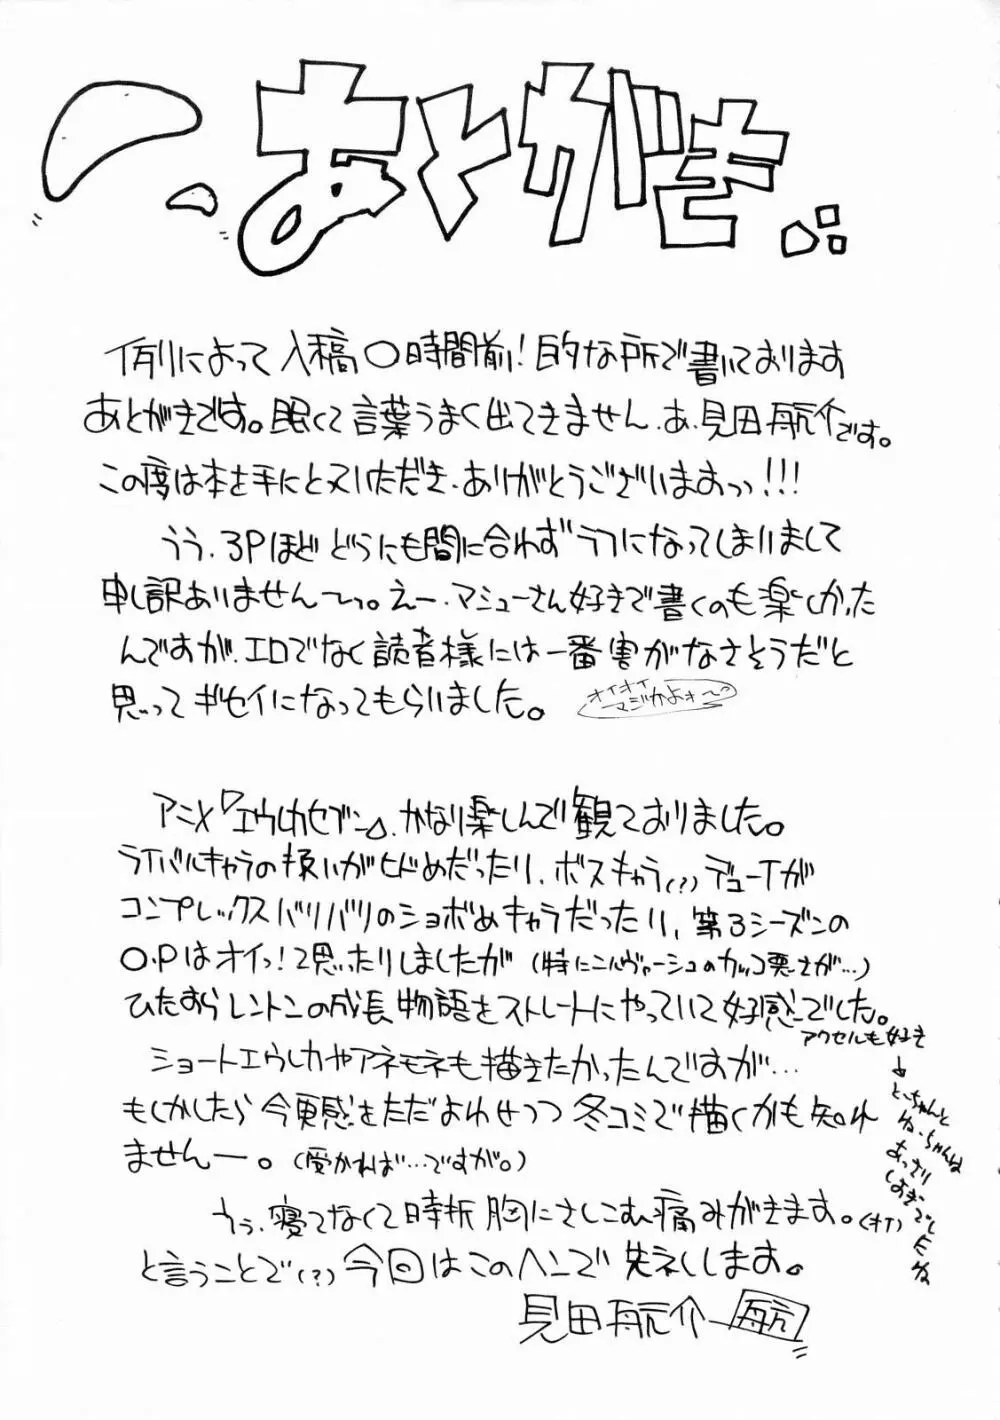 あとがき
例によって入稿〇時間前！的な所で書いております
あとがきです。眠くて言葉うまく出てきません.あ.見田航介です。
この度は本を手にとっていただき.ありがとうございますっっ！！！
うう.3Pほどどうにも間に合わずラフになってしまいまして
申し訳ありません〜っ。えー.マシューさん好きで書くのも楽しかった
んですが.エロでなく読者様には一番害がなさそうだと
思ってギセイになってもらいました。
オイオイ
マジかよォ〜
アニメ『エウレカセブン』.かなり楽しんで観ておりました。
ライバルキャラの扱いがヒドめだったり、ボスキャラ(？)デューイが
コンプレックスバリバリのショボめキャラだったり、第3シーズンの
O.Pはオイっ！と思ったりしましたが（特にニルヴァーシュのカッコ悪さが…）
ひたすらレントンの成長物語をストレートにやっていて好感でした。
アクセルも好き
↓
とーちゃんと
ねーちゃんは
あっさり
しすぎ
ショートエウレカやアネモネも描きたかったんですが…
もしかしたら今更感をただよわせつつ冬コミで描くかも知れ
ませんー。（受かれば…ですが。）
うぅ.寝てなくて時折胸にさしこむ痛みがきます。（オイ）
と言うことで(？)今回はこのヘンで失礼します。
見田航介
航